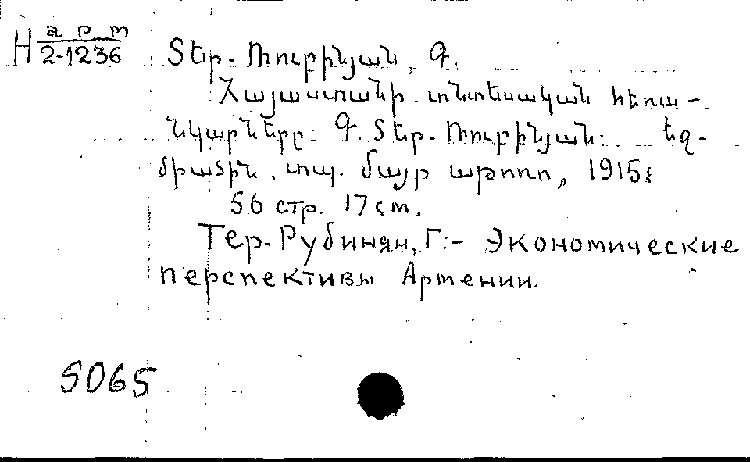 H арт
2-1236
Տեր-Ռուբինյան, Գ.
Հայաստանի տնտեսական հեռա-
նկարները: Գ. Տեր-Ռուբինյան: Եզ-
միածին, տպ. մայր աթոռո, 1915:
56 стр. 17 см.
Тер-Рубинян, Г.:- Экономические
перспективы Армении.
5065